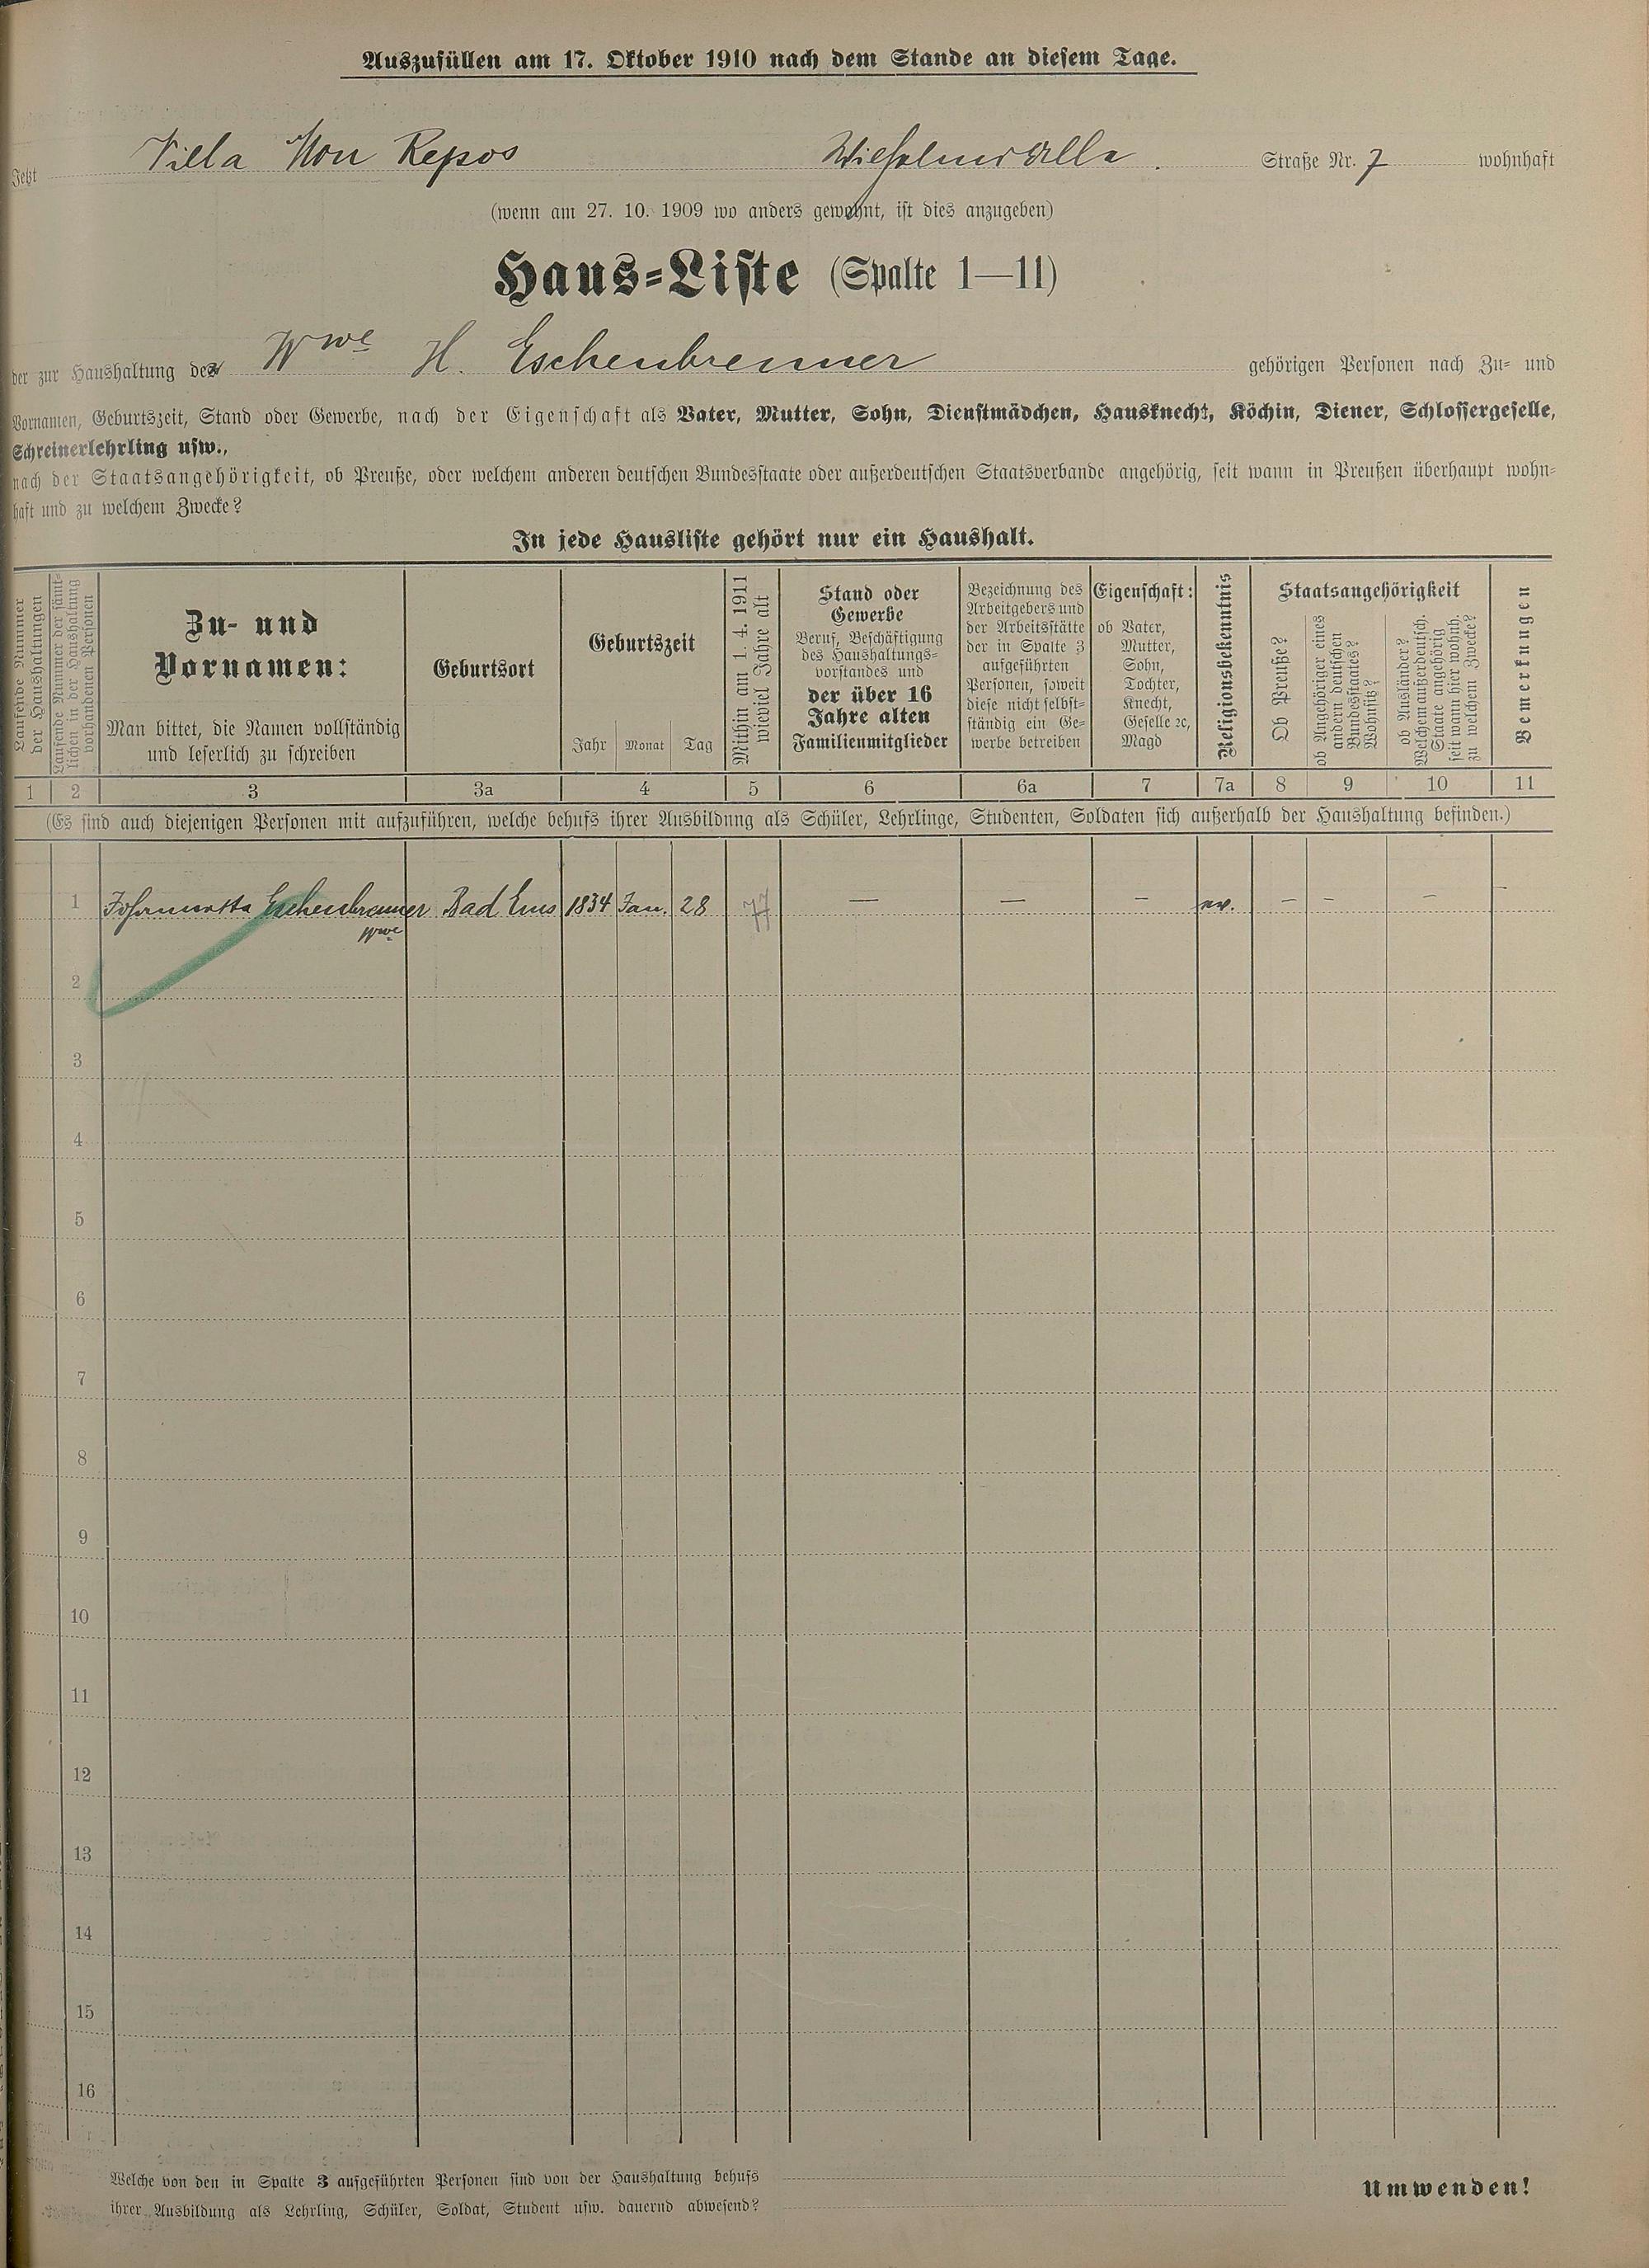 Auszufüllen am 17. Oktober 1910 nach dem Stande an diesem Tage.
Jetzt Villa Mon Repos Wilhelmsallee. Straße Nr. 7 wohnhaft
(wenn am 27. 10. 1909 wo anders gewohnt, ist dies anzugeben)
Haus-Liste (Spalte 1—11)
der zur Haushaltung der Wwe H. Eschenbrenner gehörigen Personen nach Zu- und
Vornamen, Geburtszeit, Stand oder Gewerbe, nach der Eigenschaft als Vater, Mutter, Sohn, Dienstmädchen, Hausknecht, Köchin, Diener, Schlossergeselle,
Schreinerlehrling usw.,
nach der Staatsangehörigkeit, ob Preuße, oder welchem anderen deutschen Bundesstaate oder außerdeutschen Staatsverbande angehörig, seit wann in Preußen überhaupt wohn-
haft und zu welchem Zwecke?
In jede Hausliste gehört nur ein Haushalt.
Laufende Nummer
der Haushaltungen
Laufende Nummer der sämt-
lichen in der Haushaltung
vorhandenen Personen
Zu- und
Vornamen:
Man bittet, die Namen vollständig
und leserlich zu schreiben
Geburtsort
Geburtszeit
Jahr Monat Tag
Mithin am 1. 4. 1911
wieviel Jahre alt
Stand oder
Gewerbe
Beruf, Beschäftigung
des Haushaltungs-
vorstandes und
der über 16
Jahre alten
Familienmitglieder
Bezeichnung des
Arbeitgebers und
der Arbeitsstätte
der in Spalte 3
aufgeführten
Personen, soweit
diese nicht selbst-
ständig ein Ge-
werbe betreiben
Eigenschaft:
ob Vater,
Mutter,
Sohn,
Tochter,
Knecht,
Geselle ꝛc,
Magd
Religionsbekenntnis
Staatsangehörigkeit
Ob Preuße?
ob Angehöriger eines
andern deutschen
Bundesstaates?
Wohnsitz?
ob Ausländer?
Welchem außerdeutsch.
Staate angehörig
seit wann hier wohnh.
zu welchem Zwecke?
Bemerkungen
1 2 3 3a 4 5 6 6a 7 7a 8 9 10 11
(Es sind auch diejenigen Personen mit aufzuführen, welche behufs ihrer Ausbildung als Schüler, Lehrlinge, Studenten, Soldaten sich außerhalb der Haushaltung befinden.)
1 Johannetta Eschenbrenner Bad Ems 1834 Jan. 28 77 — — — ev. — — — —
Wwe
2
3
4
5
6
7
8
9
10
11
12
13
14
15
16
Welche von den in Spalte 3 aufgeführten Personen sind von der Haushaltung behufs
ihrer Ausbildung als Lehrling, Schüler, Soldat, Student usw. dauernd abwesend?
Umwenden!